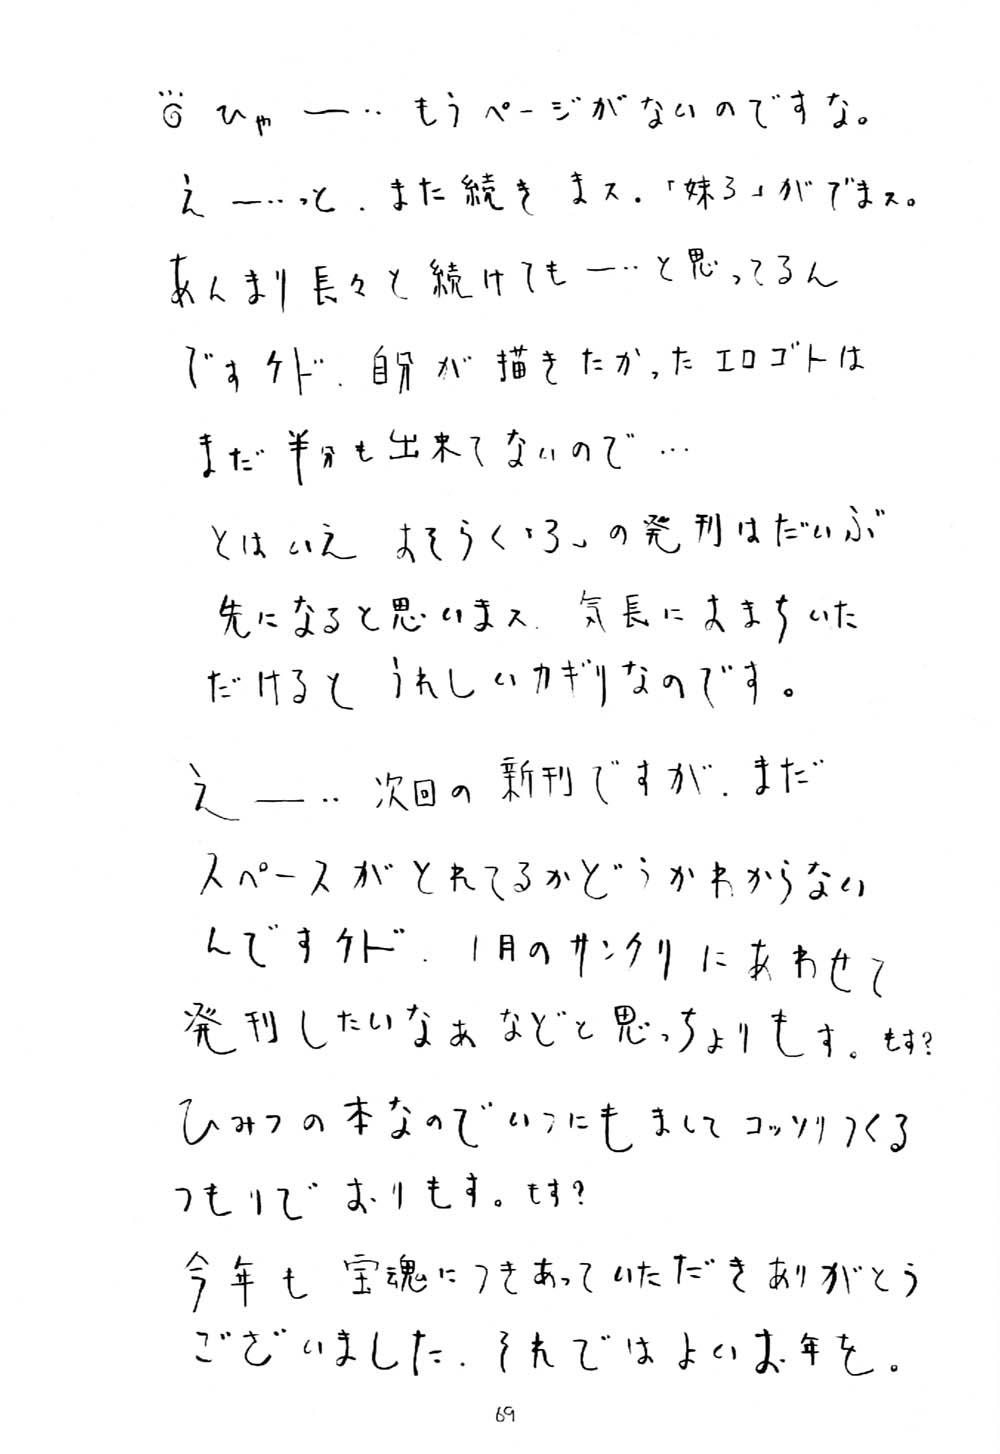 ひゃー‥もうページがないのですな。
えー‥っと、また続きまス。「妹3」がでまス。
あんまり長々と続けてもー‥と思ってるん
ですケド、自分が描きたかったエロゴトは
まだ半分も出来てないので…
とはいえおそらく「3」の発刊はだいぶ
先になると思いまス、気長におまちいた
だけるとうれしいカギりなのです。
えー‥次回の新刊ですが、まだ
スペースがとれてるかどうかわからない
んですケド、1月のサンクリにあわせて
発刊したいなぁなどと思っちょりもす。もす?
ひみつの本なのでいつにもましてコッソリつくる
つもりでおりもす。もす?
今年も宝魂につきあっていただきありがとう
ございました、それではよいお年を。
69